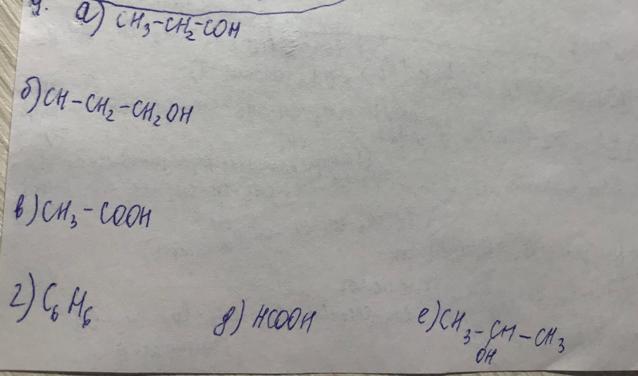 4. а) CH₃-CH₂-COH
б) CH-CH₂-CH₂OH
в) CH₃-COOH
г) C₆H₆ д) HCOOH е) CH₃-CH-CH₃
OH